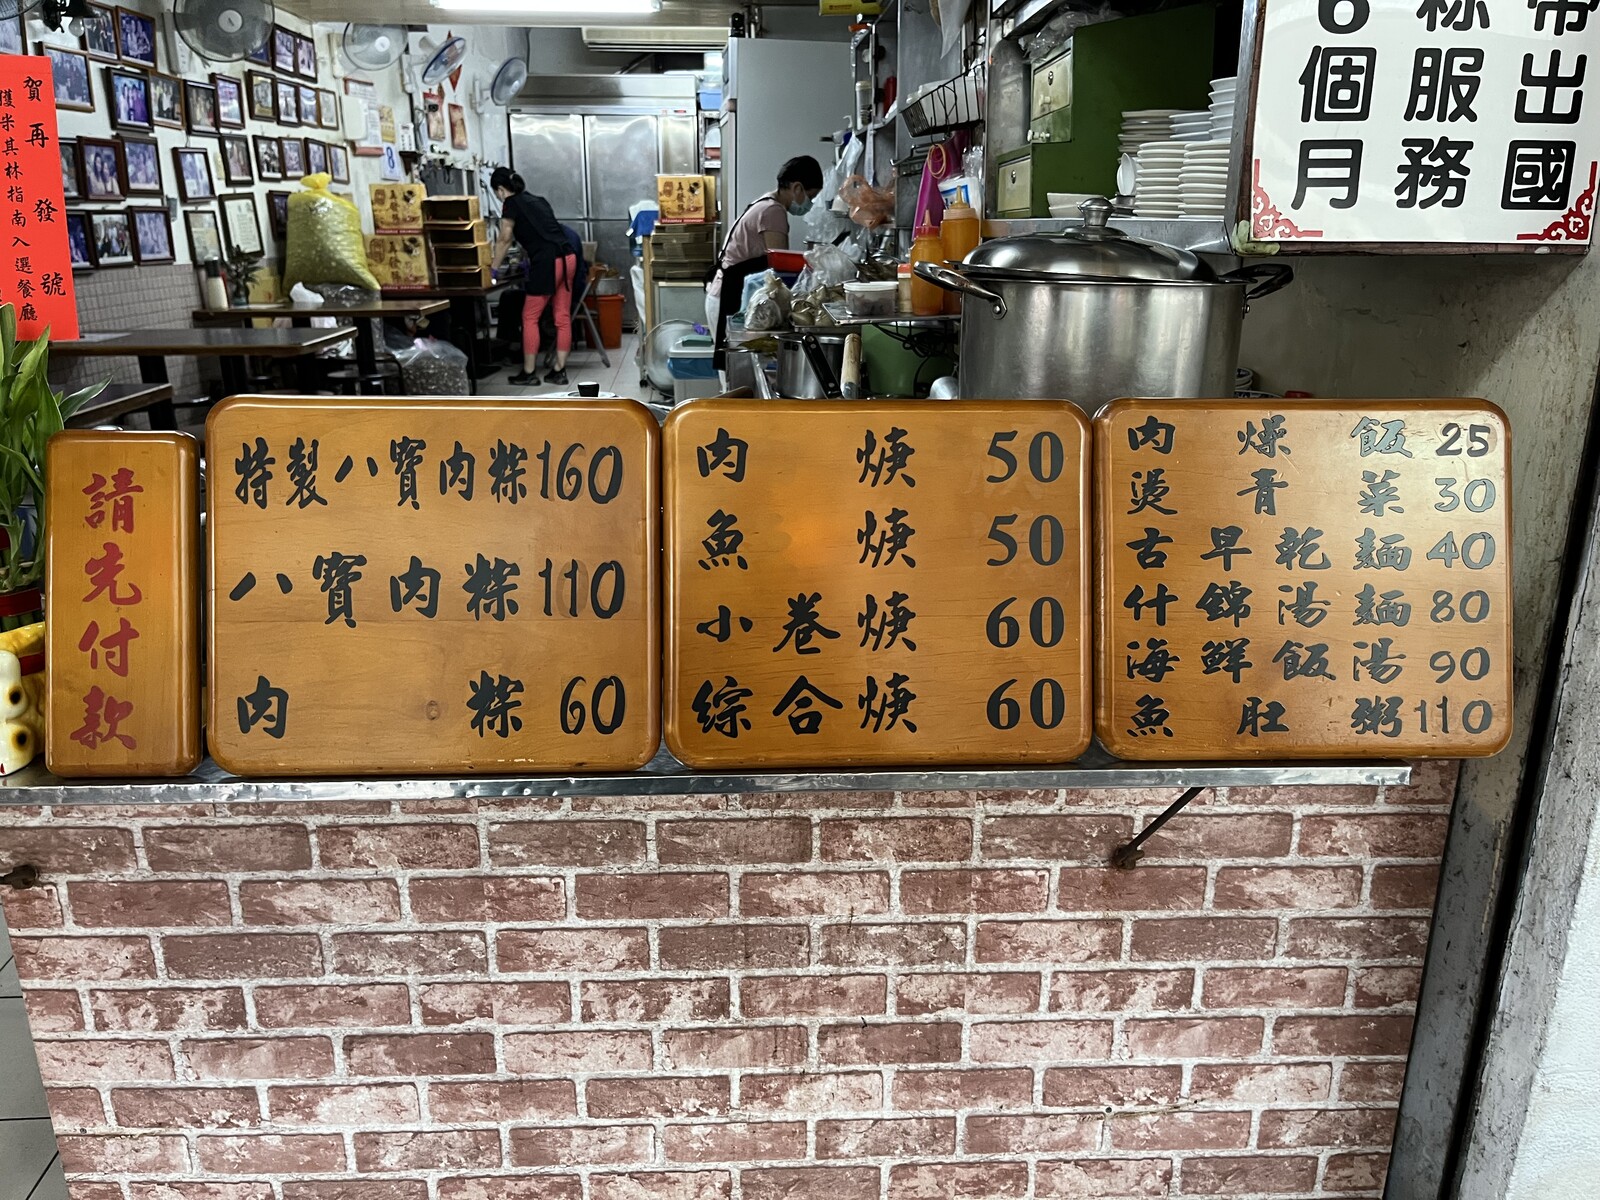 賀再發號
獲米其林指南入選餐廳
帶出國
服務
6個月
請先付款
特製八寶肉粽160
八寶肉粽110
肉粽60
肉焿50
魚焿50
小卷焿60
綜合焿60
肉燥飯25
燙青菜30
古早乾麵40
什錦湯麵80
海鮮飯湯90
魚肚粥110